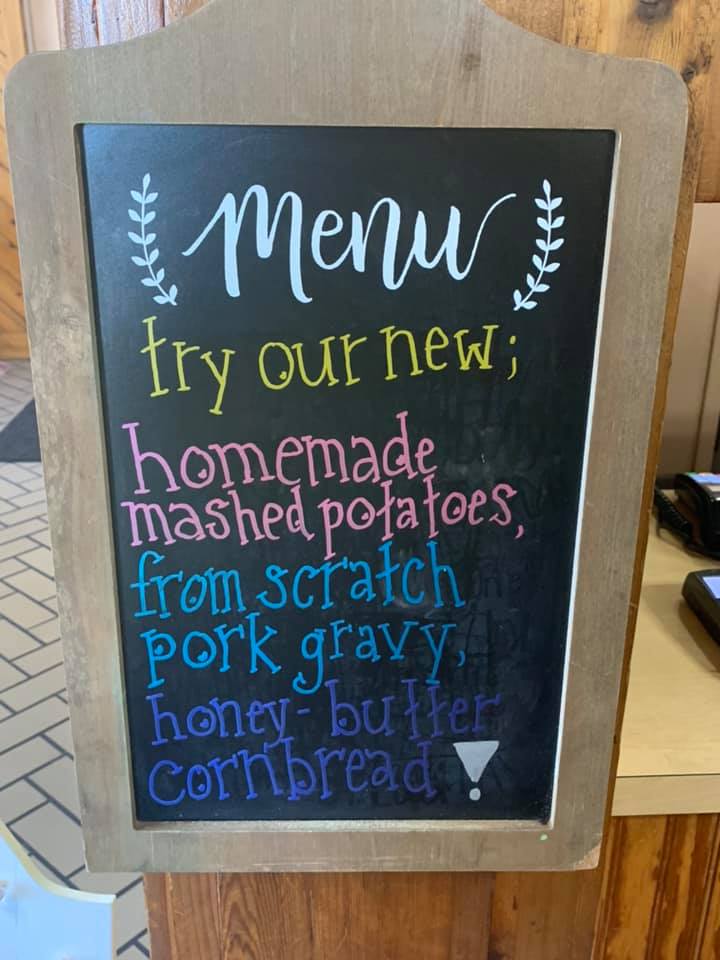 menu
try our new;
homemade
mashed potatoes,
from scratch
pork gravy,
honey-butter
cornbread!